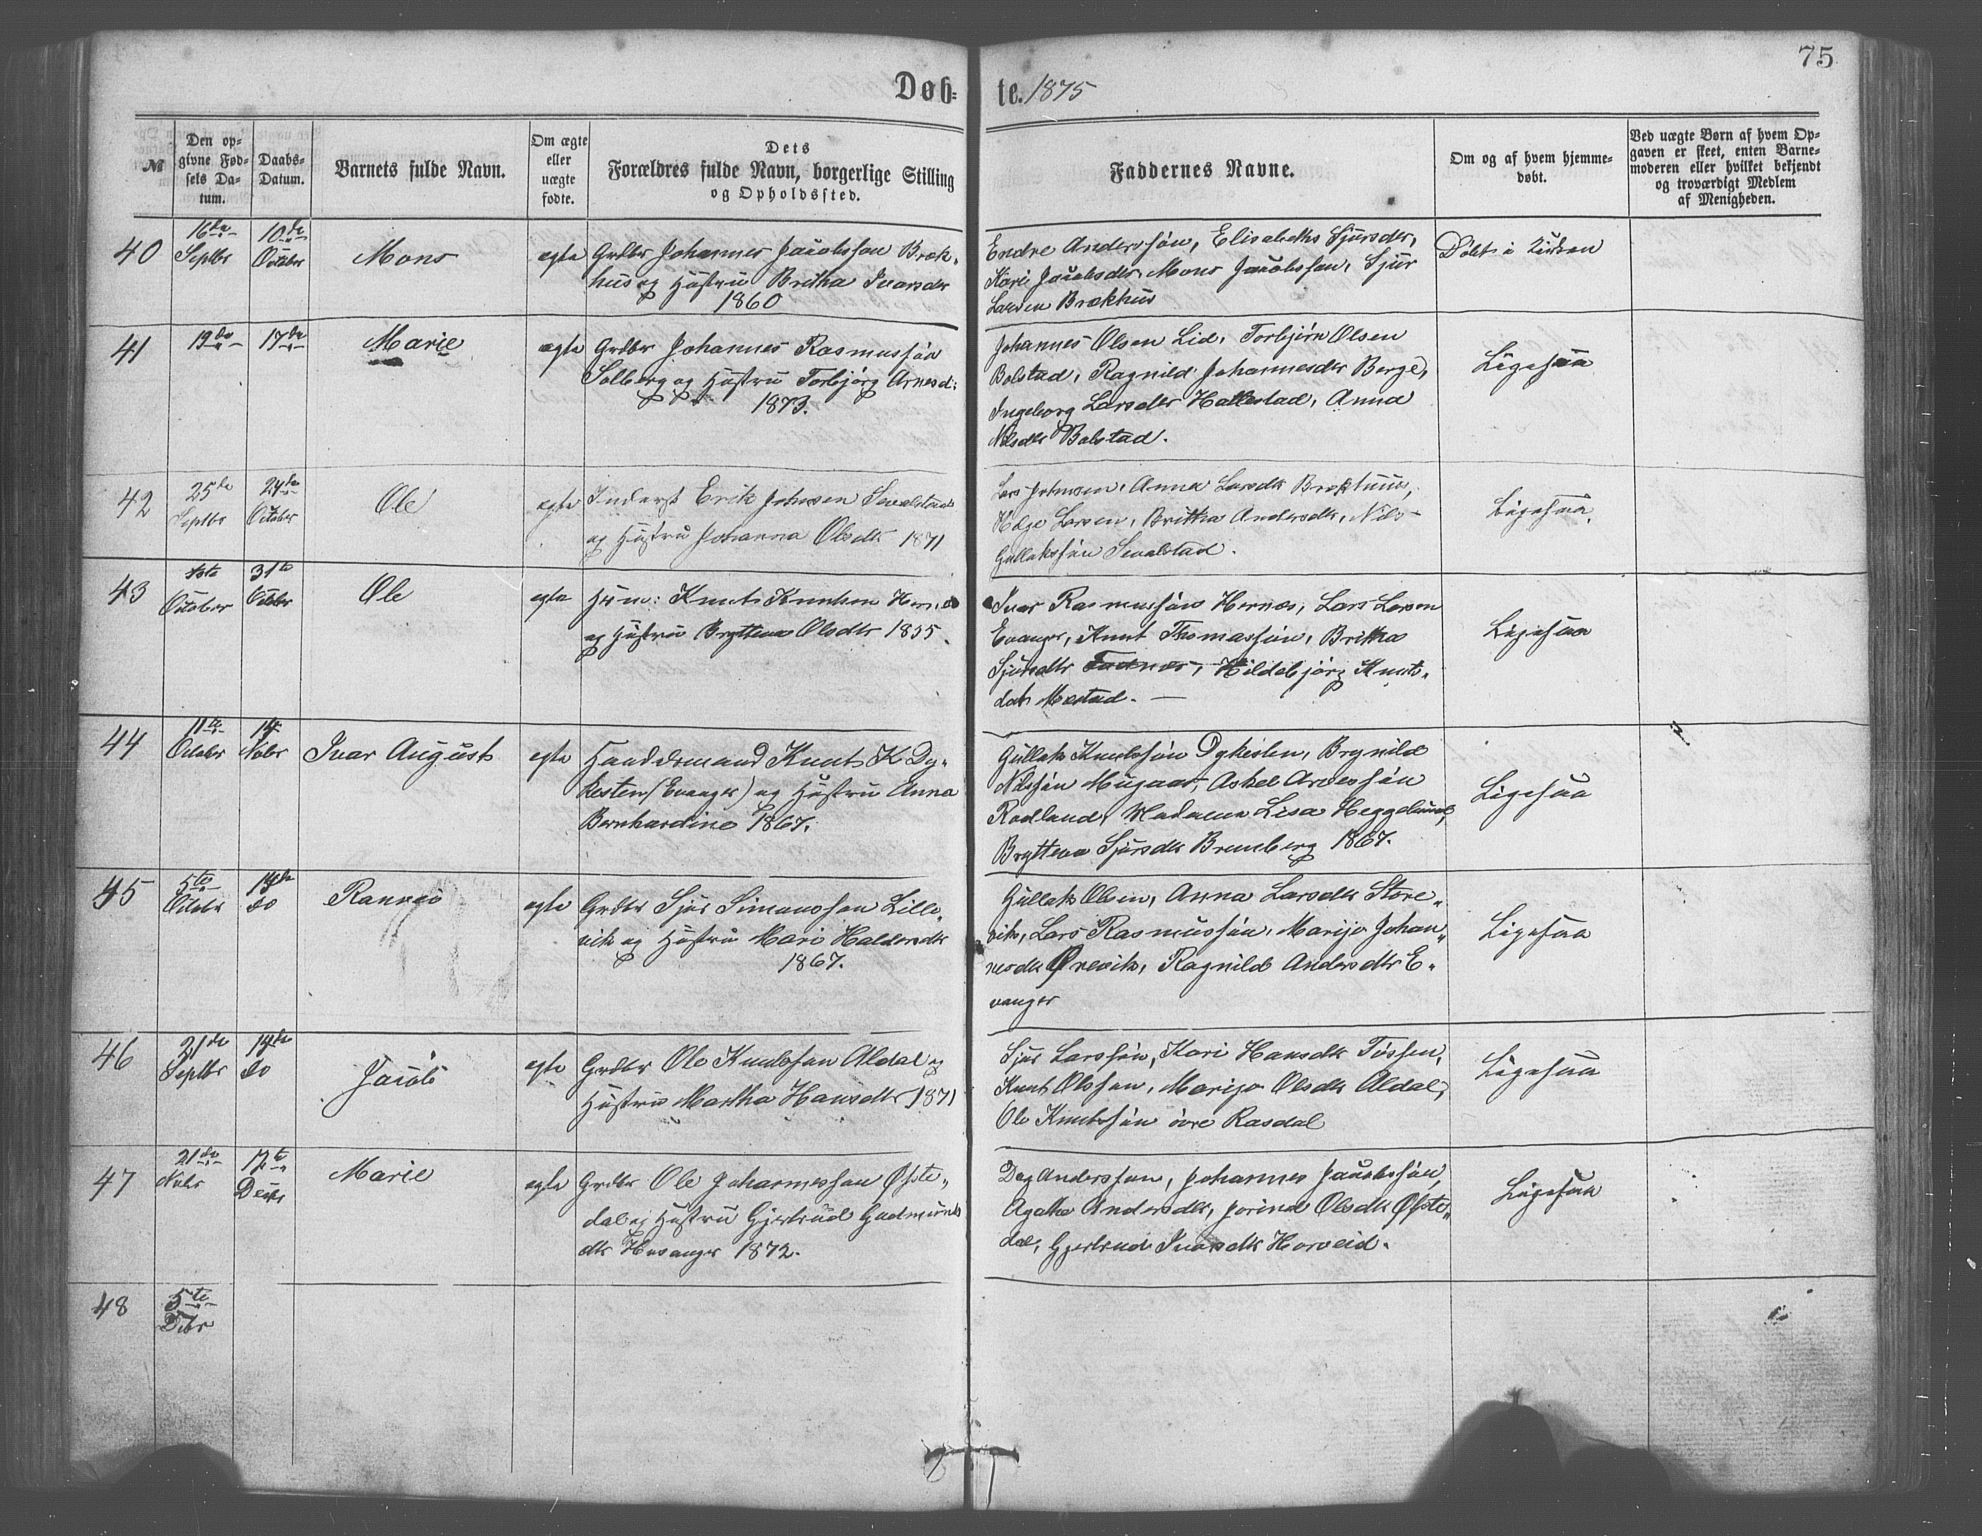 75
Døb= te. 1875
№
Den op-
givne Fød-
sels Da-
tum.
Daabs-
Datum.
Barnets fulde Navn.
Om ægte
eller
uægte
fødte.
Dets
Forældres fulde Navn, borgerlige Stilling
og Opholdssted.
Faddernes Navne.
Om og af hvem hjemme-
døbt.
Ved uægte Børn af hvem Op-
gaven er skeet, enten Barne-
moderen eller hvilket bekjendt
og troværdigt Medlem
af Menigheden.
40
16de
Septbr
10de
Octobr
Mons
ægte
Grdbr Johannes Jacobssøn Bræk-
hus og Hustru Britha Ivarsdtr
1860
Endre Anderssøn, Elisabeths Sjursdtr,
Kari Jacobsdtr, Mons Jacobssøn, Sjur
Larsen Brækhus
Døbt i Kirken
41
19de
17de
Marie
ægte
Grdbr Johannes Rasmussøn
Solberg og Hustru Torbjørg Arnesd:
1873.
Johannes Olsen Lid, Torbjørn Olsen
Bolstad, Ragnild Johannesdtr Berge,
Ingeborg Larsdtr Hallestad, Anna
Nilsdtr Bolstad.
Ligesaa
42
25de
Septbr
24de
October
Ole
ægte
Inderst Erik Johnsen
og Hustru Johanna Olsdtr 1871
Lars Johnsen, Anna Larsdtr Brækhus,
Helge Larsen, Britha Andersdtr, Nils
Gullakssøn
Ligesaa
43
1ste
October
31te
Octbr
Ole
ægte
Husm: Knut Knutsen
og Hustru Brytteva Olsdtr 1855.
Ivar Rasmussøn Hernæs, Lars Larsen
Evanger, Knut Thomassøn, Britha
Sjursdtr Fadnæs, Hildebjørg Knuts-
datr Mestad.
Ligesaa
44
11te
Octobr
14
Nobr
Ivar August
ægte
Handelsmand Knut K Dy-
kesten (Evanger) og Hustru Anna
Bernhardine 1867.
Gullak Knutssøn Dykesten, Brynild
Nilssøn Mugaas, Askel Arnessøn
Rodland, Madame Lisa
Brytteva Sjursdtr Brunborg 1867.
Ligesaa
45
5te
Octobr
14de
do
Rannei
ægte
Grdbr Sjur Simonssøn Lille-
vik og Hustru Mari Haldorsdtr
1867.
Gullak Olsen, Anna Larsdtr Store-
vik, Lars Rasmussøn, Marijo Johan-
nesdtr Ørevik, Ragnild Andersdtr E-
vanger
Ligesaa
46
21de
Septbr
14de
do
Jacob
ægte
Grdbr Ole Knutssøn Aldal og
Hustru Martha Hansdtr 1871
Sjur Larssøn, Kari Hansdtr Tøssen,
Knut Olssøn, Marijo Olsdtr Aldal,
Ole Knutssøn øvre Rasdal
Ligesaa
47
21de
Nobr
Decbr
Marie
ægte
Grdbr Ole Johannessøn Øfste-
dal og Hustru Gjertrud Gudmunds
dtr Hosanger 1872.
Dag Anderssøn, Johannes Jacobssøn,
Agatha Andersdtr, Jorind Olsdtr Øfste-
dal, Gjertrud Ivarsdtr Horveid.
Ligesaa
48
5te